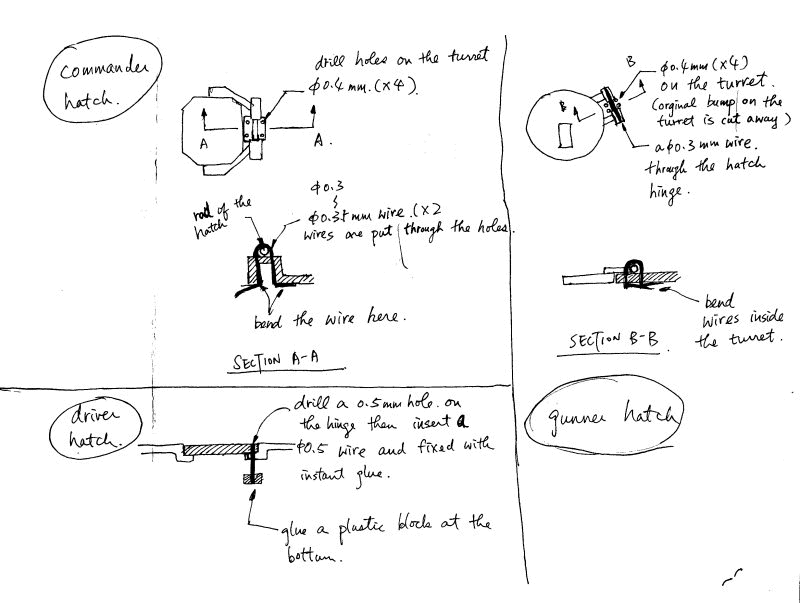 commander
hatch.
drill holes on the turret
ϕ0.4 mm.(×4).
A
A.
ϕ0.3
ϕ0.35 mm wire.(×2
wires are put through the holes.
rod of the
hatch
bend the wire here.
SECTION A-A
B
ϕ0.4mm(×4)
on the turret.
(orginal bump on the
turret is cut away)
B
a ϕ0.3 mm wire.
through the hatch
hinge.
bend
wires inside
the turret.
SECTION B-B
driver
hatch.
drill a 0.5mm hole. on
the hinge then insert a
ϕ0.5 wire and fixed with
instant glue.
glue a plastic block at the
bottom.
gunner hatch